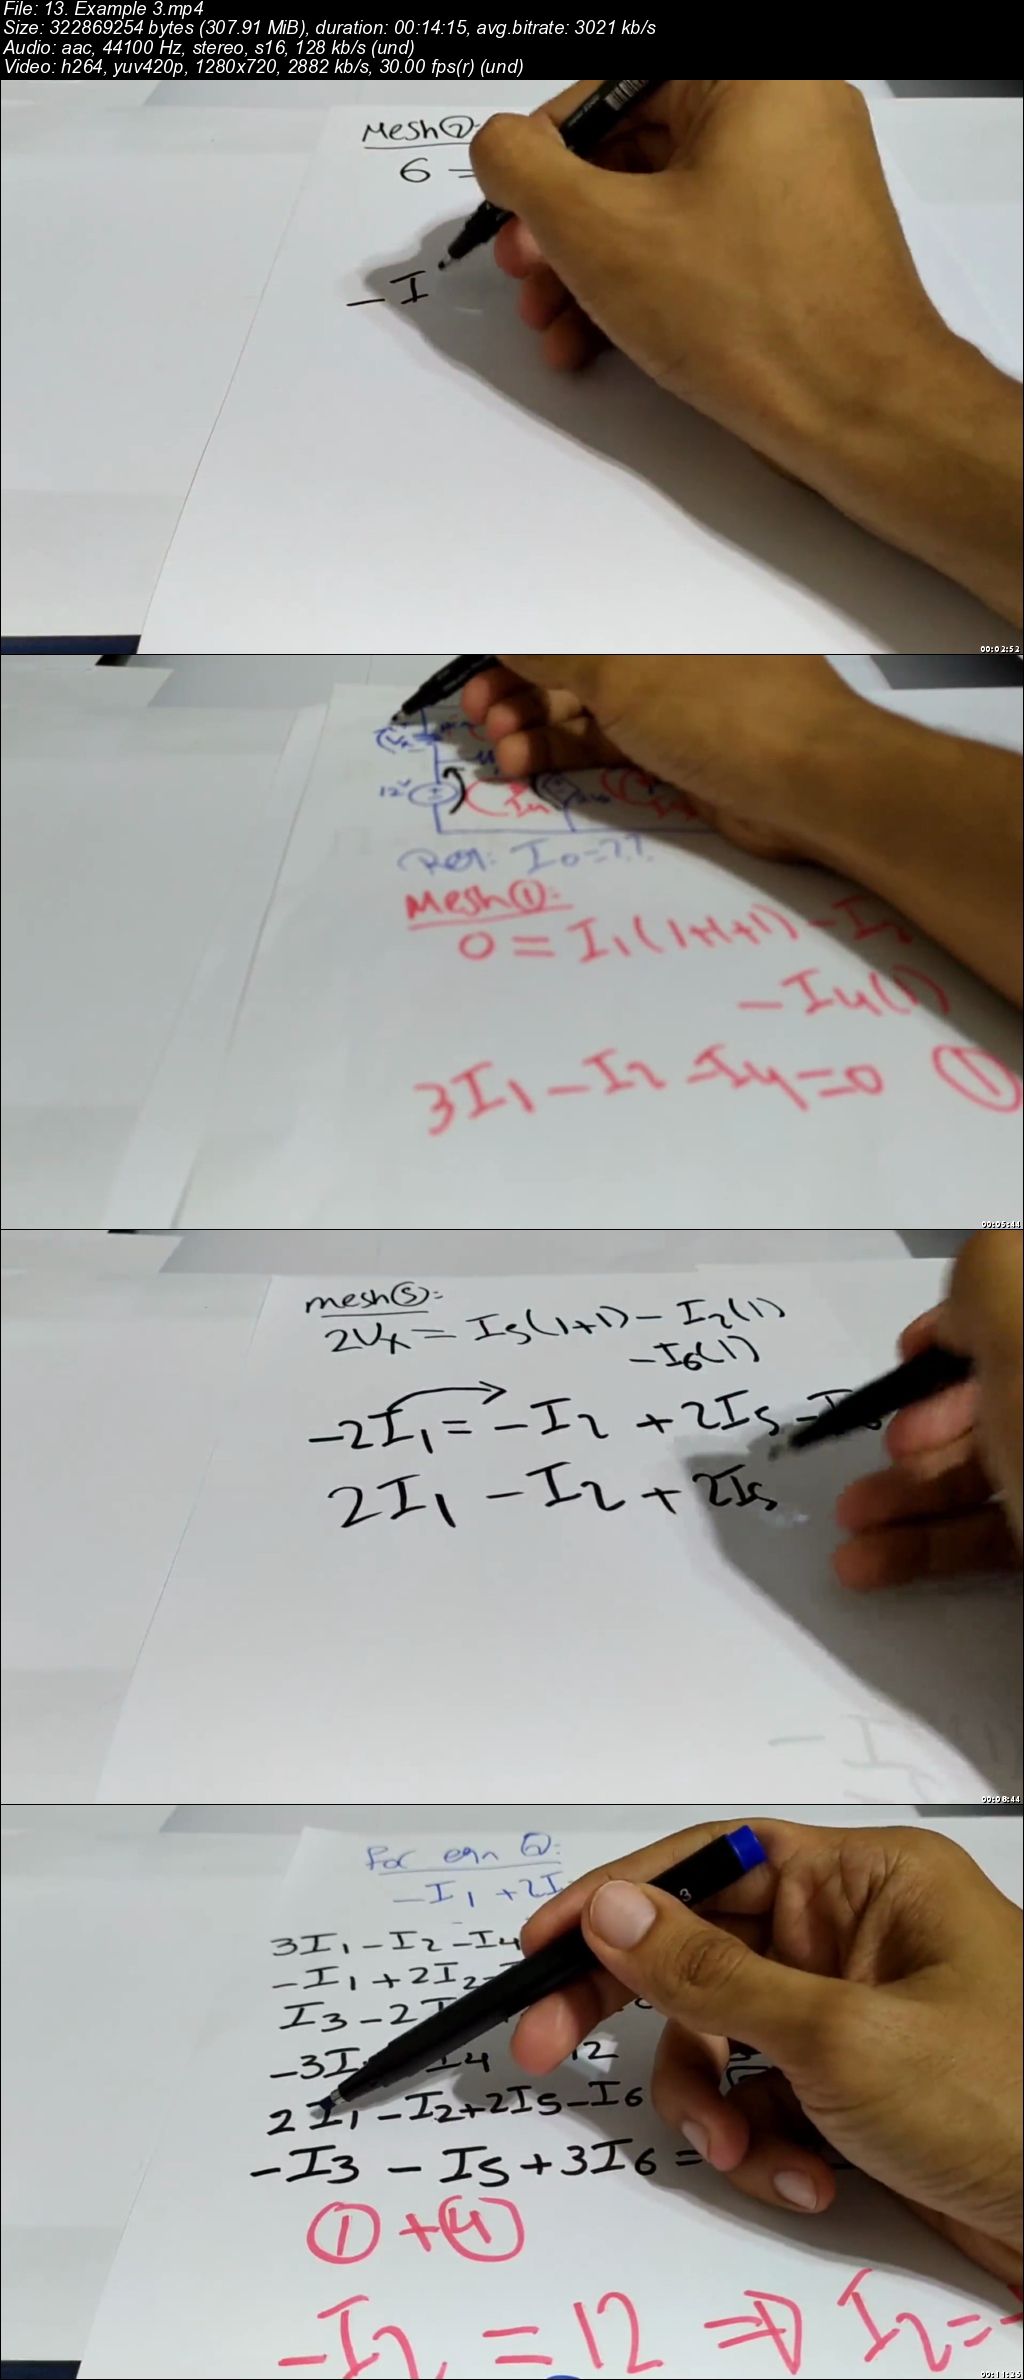 File: 13. Example 3.mp4
Size: 322869254 bytes (307.91 MiB), duration: 00:14:15, avg.bitrate: 3021 kb/s
Audio: aac, 44100 Hz, stereo, s16, 128 kb/s (und)
Video: h264, yuv420p, 1280x720, 2882 kb/s, 30.00 fps(r) (und)
Mesh②:
6 =
- I
00:02:52
12V
I4
Req: Io=??
Mesh①:
0 = I1(1+1+1) - I2
- I4(1)
3I1 - I2 - I4 = 0 ①
00:05:44
mesh⑤:
2Vx = I5(1+1) - I2(1)
- I6(1)
-2I1 = -I2 + 2I5 - I6
2I1 - I2 + 2I5
00:08:44
For eqn ②:
- I1 + 2I
3I1 - I2 - I4
- I1 + 2I2 -
I3 - 2I
-3I I4 12
2I1 - I2 + 2I5 - I6
- I3 - I5 + 3I6 =
① + ④
- I2 = 12 ⇒ I2 = -
00:11:36